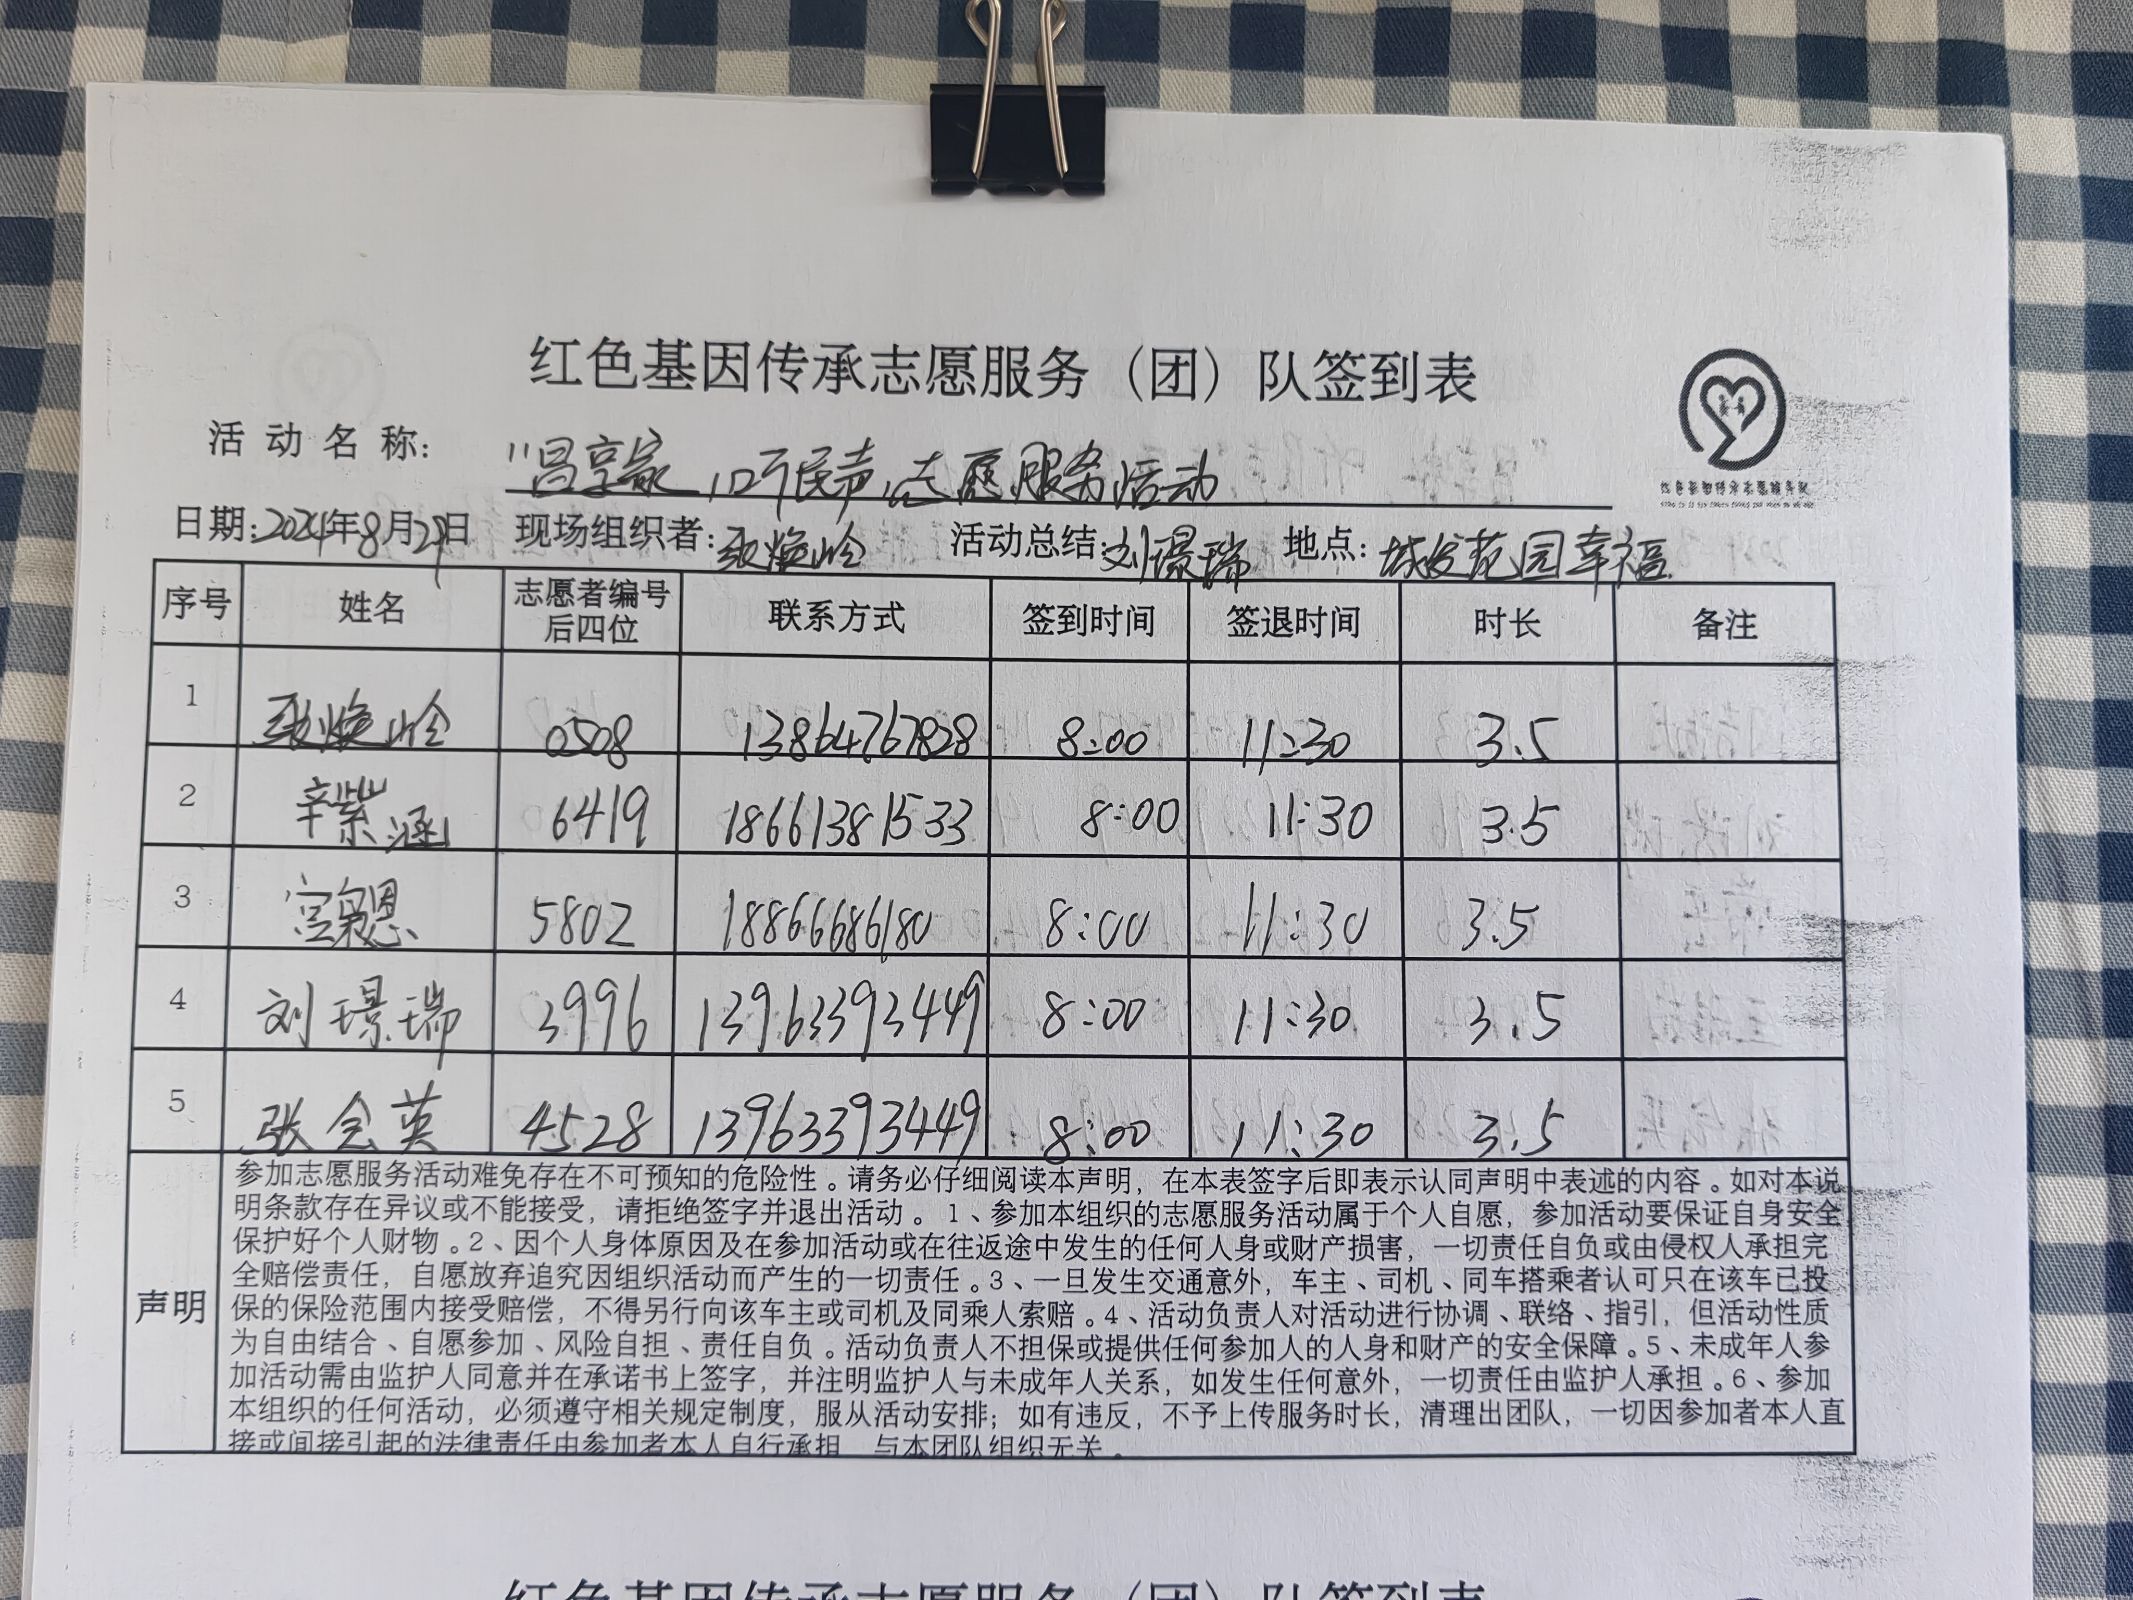 红色基因传承志愿服务（团）队签到表
活动名称： "昌享家，口听民声，志愿服务活动
日期：2024年8月29日 现场组织者： 活动总结：刘璟瑞 地点：城发花园幸福
序号 姓名 志愿者编号后四位 联系方式 签到时间 签退时间 时长 备注
1 0508 13864767828 8:00 11:30 3.5
2 辛紫涵 6419 18661381533 8:00 11:30 3.5
3 宫泉恩 5802 18866686180 8:00 11:30 3.5
4 刘璟瑞 3996 13963393449 8:00 11:30 3.5
5 张会英 4528 13963393449 8:00 11:30 3.5
声明
参加志愿服务活动难免存在不可预知的危险性。请务必仔细阅读本声明，在本表签字后即表示认同声明中表述的内容。如对本说
明条款存在异议或不能接受，请拒绝签字并退出活动。1、参加本组织的志愿服务活动属于个人自愿，参加活动要保证自身安全
保护好个人财物。2、因个人身体原因及在参加活动或在往返途中发生的任何人身或财产损害，一切责任自负或由侵权人承担完
全赔偿责任，自愿放弃追究因组织活动而产生的一切责任。3、一旦发生交通意外，车主、司机、同车搭乘者认可只在该车已投
保的保险范围内接受赔偿，不得另行向该车主或司机及同乘人索赔。4、活动负责人对活动进行协调、联络、指引，但活动性质
为自由结合、自愿参加、风险自担、责任自负。活动负责人不担保或提供任何参加人的人身和财产的安全保障。5、未成年人参
加活动需由监护人同意并在承诺书上签字，并注明监护人与未成年人关系，如发生任何意外，一切责任由监护人承担。6、参加
本组织的任何活动，必须遵守相关规定制度，服从活动安排；如有违反，不予上传服务时长，清理出团队，一切因参加者本人直
接或间接引起的法律责任由参加者本人自行承担，与本团队组织无关。
红色基因传承志愿服务（团）队签到表